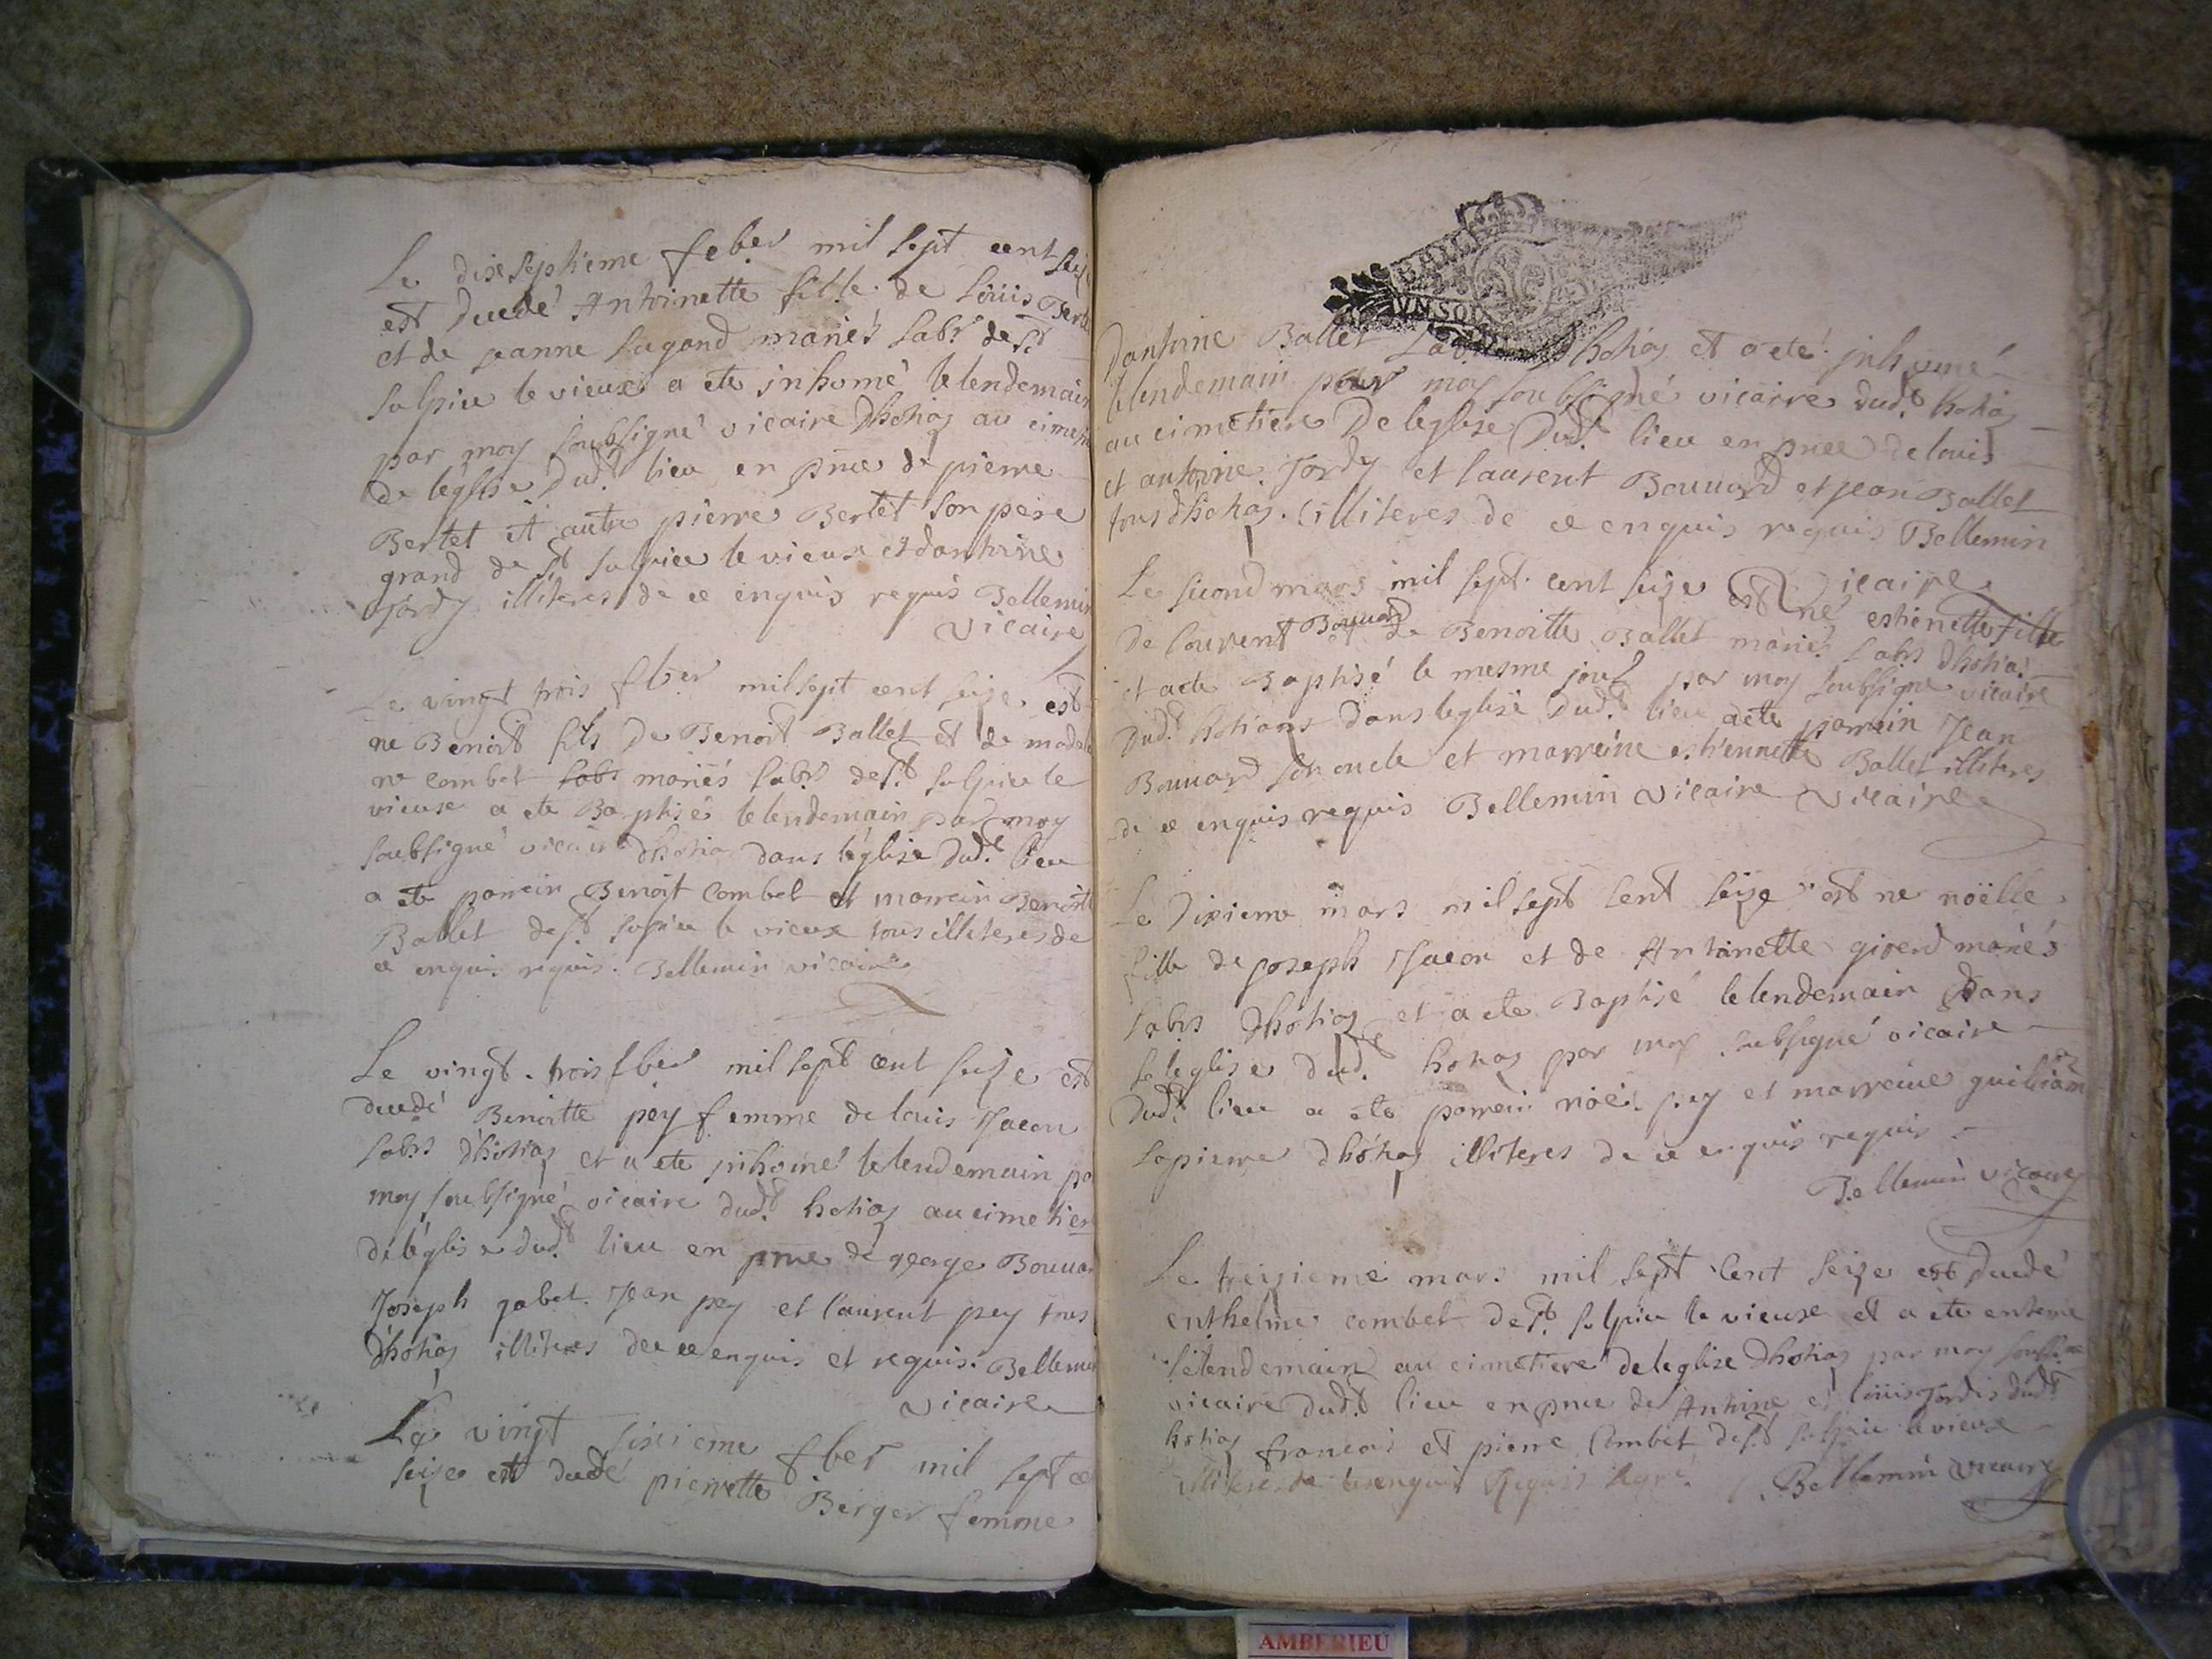 Le dixe septieme feber mil sept cent seize
est decedé Antoinette fille de Loüis Berte
et de jeanne sagond mariés labrs de st
sulpice le vieux a ete inhumé le lendemain
par moy soubsigné vicaire dhotias au cimetie
de leglise dudt lieu en pnce de pierre
Bertet et autre pierre Bertet son pere
grand de st sulpice le vieux et dantoine
jordy illiteres de ce enquis requis Bellemin
vicaire
Le vingt trois fber mil sept cent seize est
ne Benoit fils De Benoit Ballet et de madele
ne combet labrs mariés labrs de st sulpice le
vieuxe a ete Baptisé le lendemain par moy
soubsigné vicaire dhotias dans léglise dudt lieu
a ete parrein Benoit combet et marrein Benoite
Ballet de st sulpice le vieux tous illiteres de
ce enquis requis. Bellemin vicaire
Le vingt trois fber mil sept cent seize est
decedé Benoitte pey femme de louis Jacon
labrs dhotias et a ete inhumé le lendemain pa
moy soubsigné vicaire dudt hotias au cimetier
de léglise dudt lieu en pnce de george Bouuar
Joseph gabet Jean pey et laurent pey tous
dhotias illiteres de ce enquis et requis. Bellemin
vicaire
Le vingt sixieme fber mil sept ce
seize est decedé pierrette Berger femme
AMBERIEU
UN SOL
Dantoine Ballet Labrs dhotias et a eté inhumé
le lendemain par moy soubsigné vicaire dudt hotias
au cimetiere De leglise Dudt lieu en pnce de louis
et antoine Jordy et laurent Bouuard et jean Ballet
tous dhotias illiteres de ce enquis requis Bellemin
vicaire
Le second mars mil sept cent seize est né estienette fille
de laurent Bouuard et de Benoitte Ballet mariés labrs dhotias
et a ete Baptisé le mesme jour par moy soubsigné vicaire
dudt hotians dans leglise dudt lieu a ete parrein Jean
Bouuard son oncle et marreine estiennette Ballet illiteres
de ce enquis requis Bellemin vicaire vicaire
Le Dixieme mars mil sept cent seize est ne noëlle
fille de joseph Jacon et de Antoinette giverd mariés
labrs dhotias et a ete Baptisé le lendemain dans
leglise dudt hotias par moy soubsigné vicaire
dudt lieu a ete parrein noel pey et marreine
lapierre dhotias illiteres de ce enquis requis
Bellemin vicaire
Le treizieme mars mil sept cent seize est decedé
enthelme combet de st sulpice le vieuxe et a ete enterre
le lendemain au cimetiere de leglise dhotias par moy soussigne
vicaire dudt lieu en pnce de Antoine et loüis Jordis dudt
hotias francois et pierre Combet de st sulpice le vieux
illiteres de ce enquis Requis
Bellemin vicaire